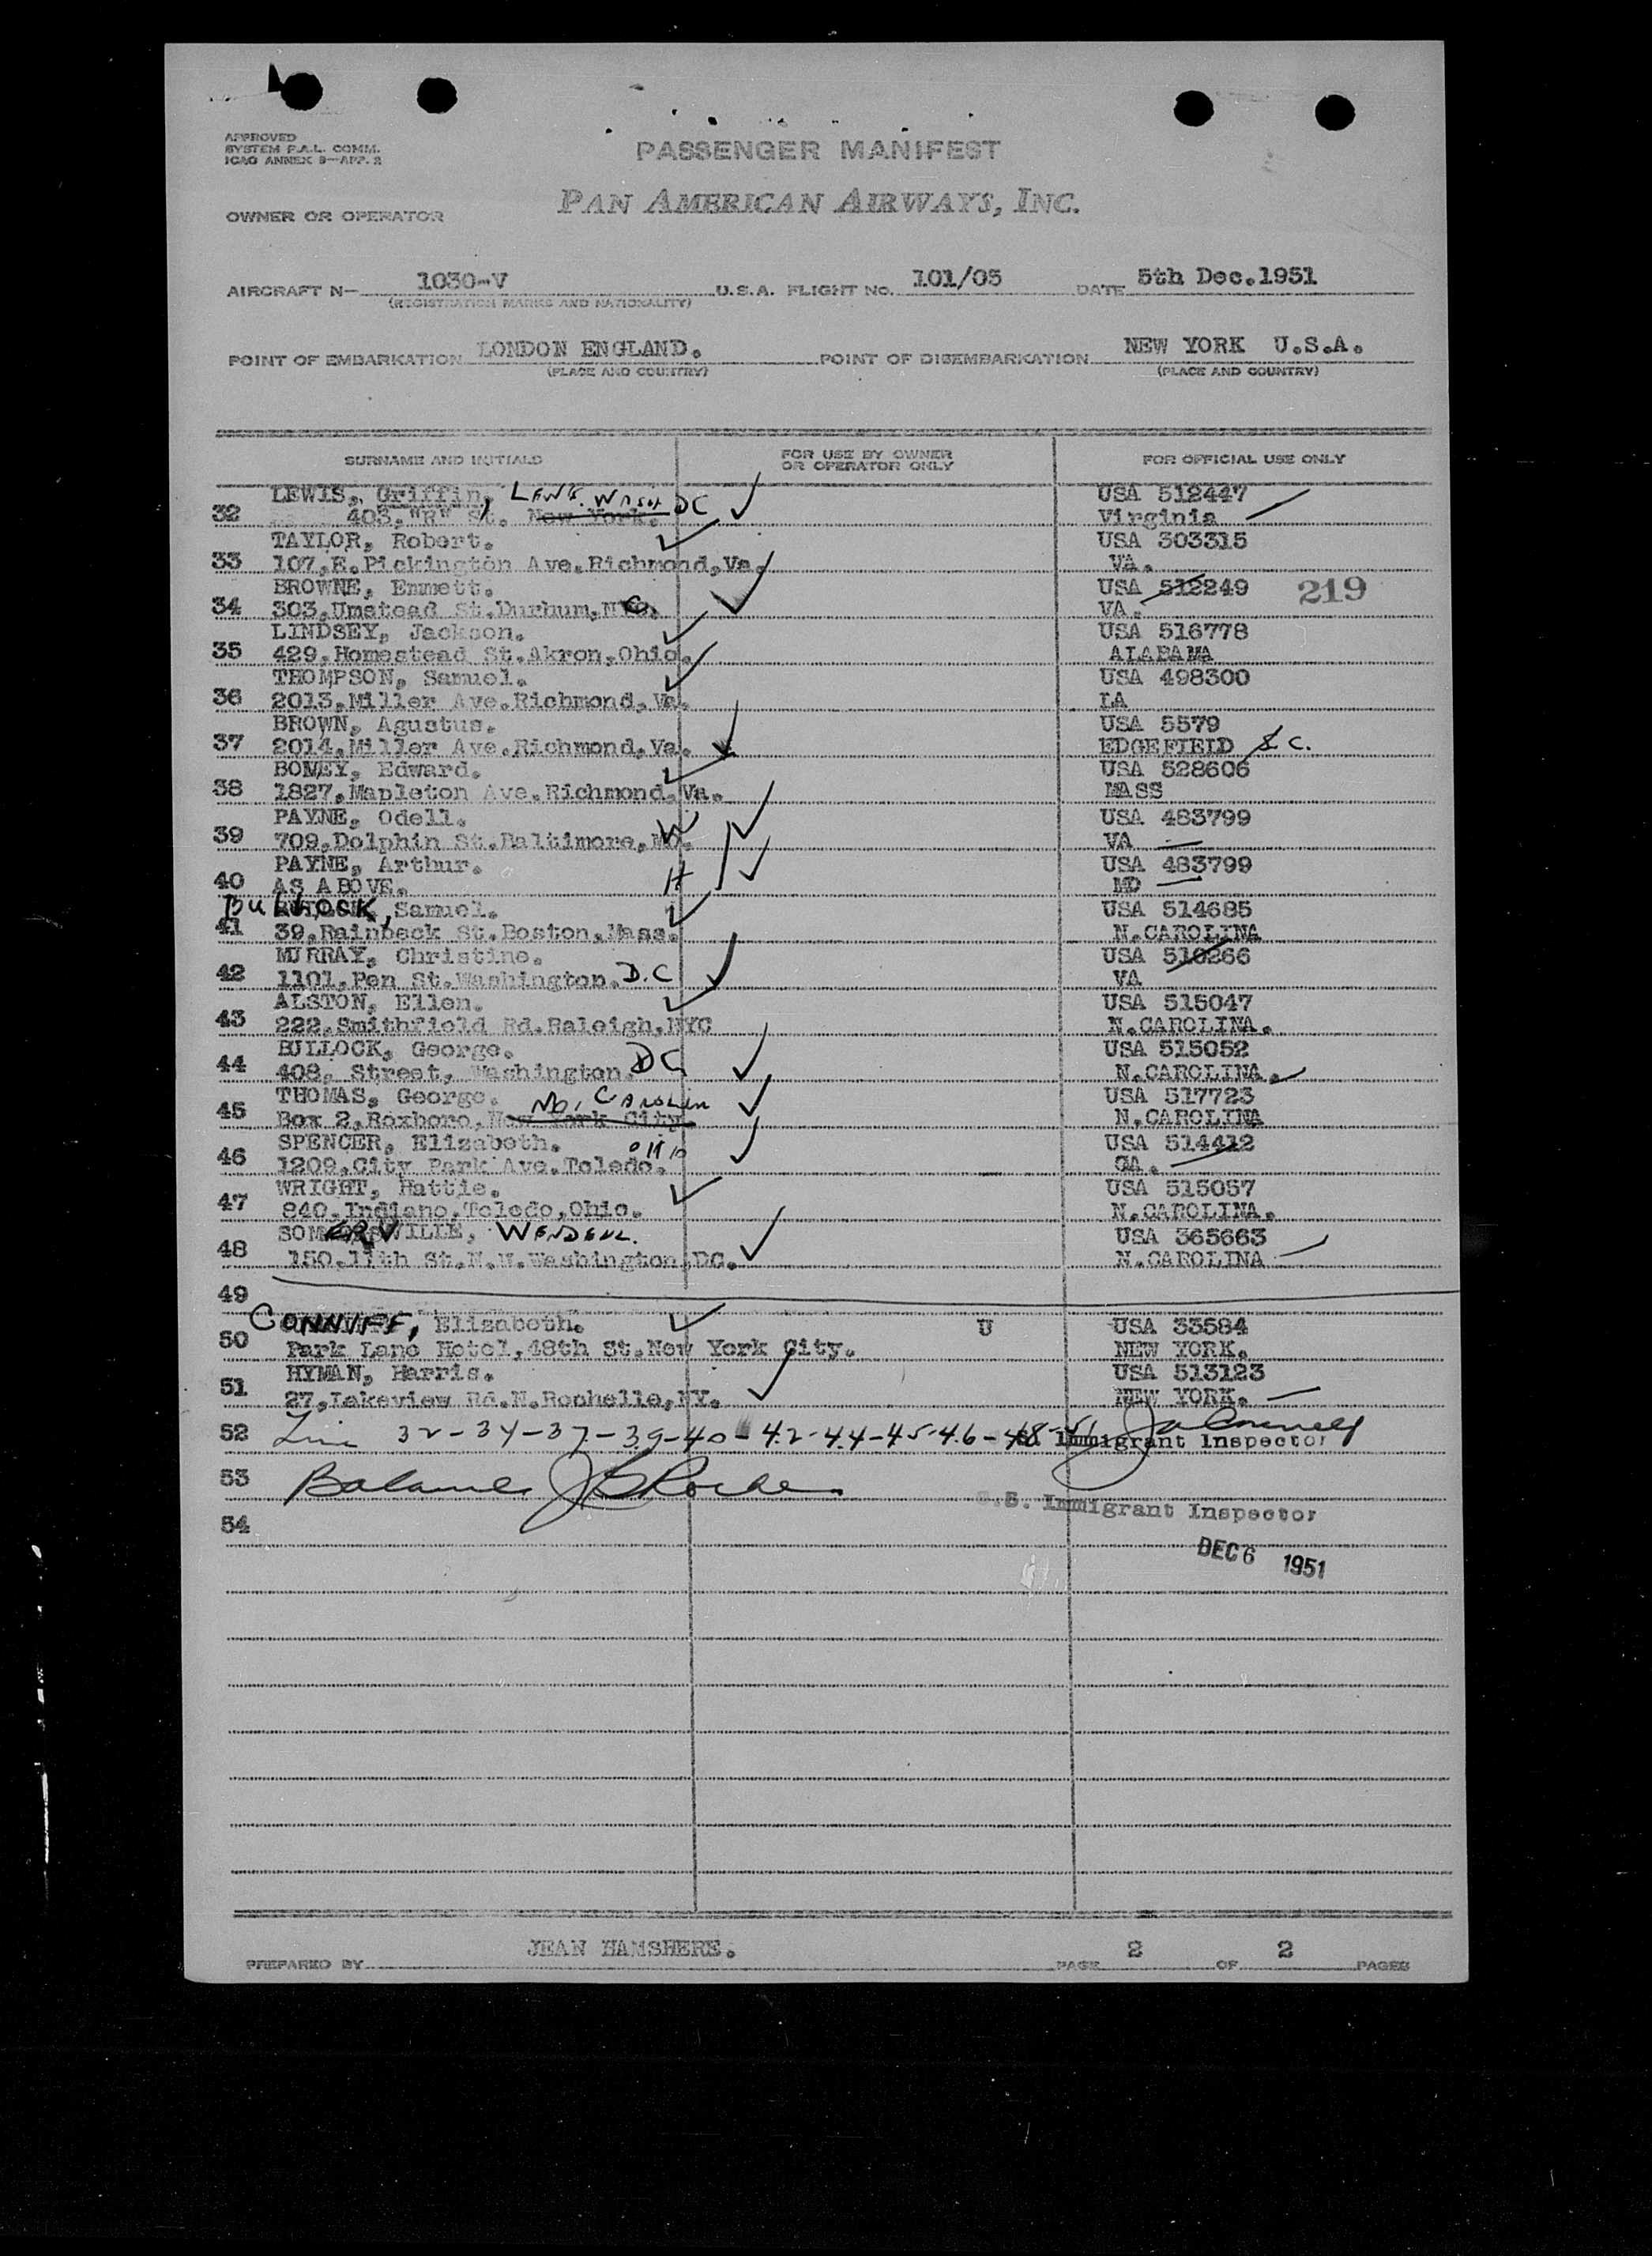 APPROVED
SYSTEM P.A.L. COMM.
ICAO ANNEX 9—APP. 2
PASSENGER MANIFEST
PAN AMERICAN AIRWAYS, INC.
OWNER OR OPERATOR
AIRCRAFT N— 1030-V U.S.A. FLIGHT NO. 101/05 DATE 5th Dec.1951
(REGISTRATION MARKS AND NATIONALITY)
POINT OF EMBARKATION LONDON ENGLAND. POINT OF DISEMBARKATION NEW YORK U.S.A.
(PLACE AND COUNTRY) (PLACE AND COUNTRY)
SURNAME AND INITIALS FOR USE BY OWNER OR OPERATOR ONLY FOR OFFICIAL USE ONLY
LEWIS, Griffin, WASH DC USA 512447
32 403,"R" St. New York. Virginia
TAYLOR, Robert. USA 303315
33 107,E.Pickington Ave.Richmond,Va. VA.
BROWNE, Emmett. USA 512249 219
34 303,Umstead St.Durham,N.C. VA.
LINDSEY, Jackson. USA 516778
35 429,Homestead St.Akron,Ohio. ALABAMA
THOMPSON, Samuel. USA 498300
36 2013,Miller Ave.Richmond,Va. LA
BROWN, Agustus. USA 5579
37 2014,Miller Ave.Richmond,Va. EDGEFIELD S.C.
BONEY, Edward. USA 528606
38 1827,Mapleton Ave.Richmond,Va. MASS
PAYNE, Odell. W USA 483799
39 709,Dolphin St.Baltimore,MD. VA
PAYNE, Arthur. USA 483799
40 AS ABOVE. H MD
BULLOCK, Samuel. USA 514685
41 39,Rainbeck St.Boston,Mass. N.CAROLINA
MURRAY, Christine. USA 510266
42 1101,Pen St.Washington. D.C VA
ALSTON, Ellen. USA 515047
43 222,Smithfield Rd.Raleigh,NYC N.CAROLINA.
BULLOCK, George. USA 515052
44 408, Street, Washington. DC N.CAROLINA.
THOMAS, George. No. CAROLIN USA 517723
45 Box 2,Roxboro,New York City N.CAROLINA
SPENCER, Elizabeth. OHIO USA 514412
46 1209,City Park Ave.Toledo. GA.
WRIGHT, Hattie. USA 515057
47 840,Indiano,Toledo,Ohio. N.CAROLINA.
SOMERVILLE, WENDELL. USA 365663
48 150,11th St.N.W.Washington,DC. N.CAROLINA
49
CONNIFF, Elizabeth. U USA 33584
50 Park Lane Hotel,48th St.New York City. NEW YORK.
HYMAN, Harris. USA 513123
51 27,Lakeview Rd.N.Rochelle,NY. NEW YORK.
52 Line 32-34-37-39-40-42-44-45-46-48-51 Immigrant Inspector
53 Balance
U.S. Immigrant Inspector
54
DEC 6 1951
PREPARED BY JEAN HAMSHERE. PAGE 2 OF 2 PAGES